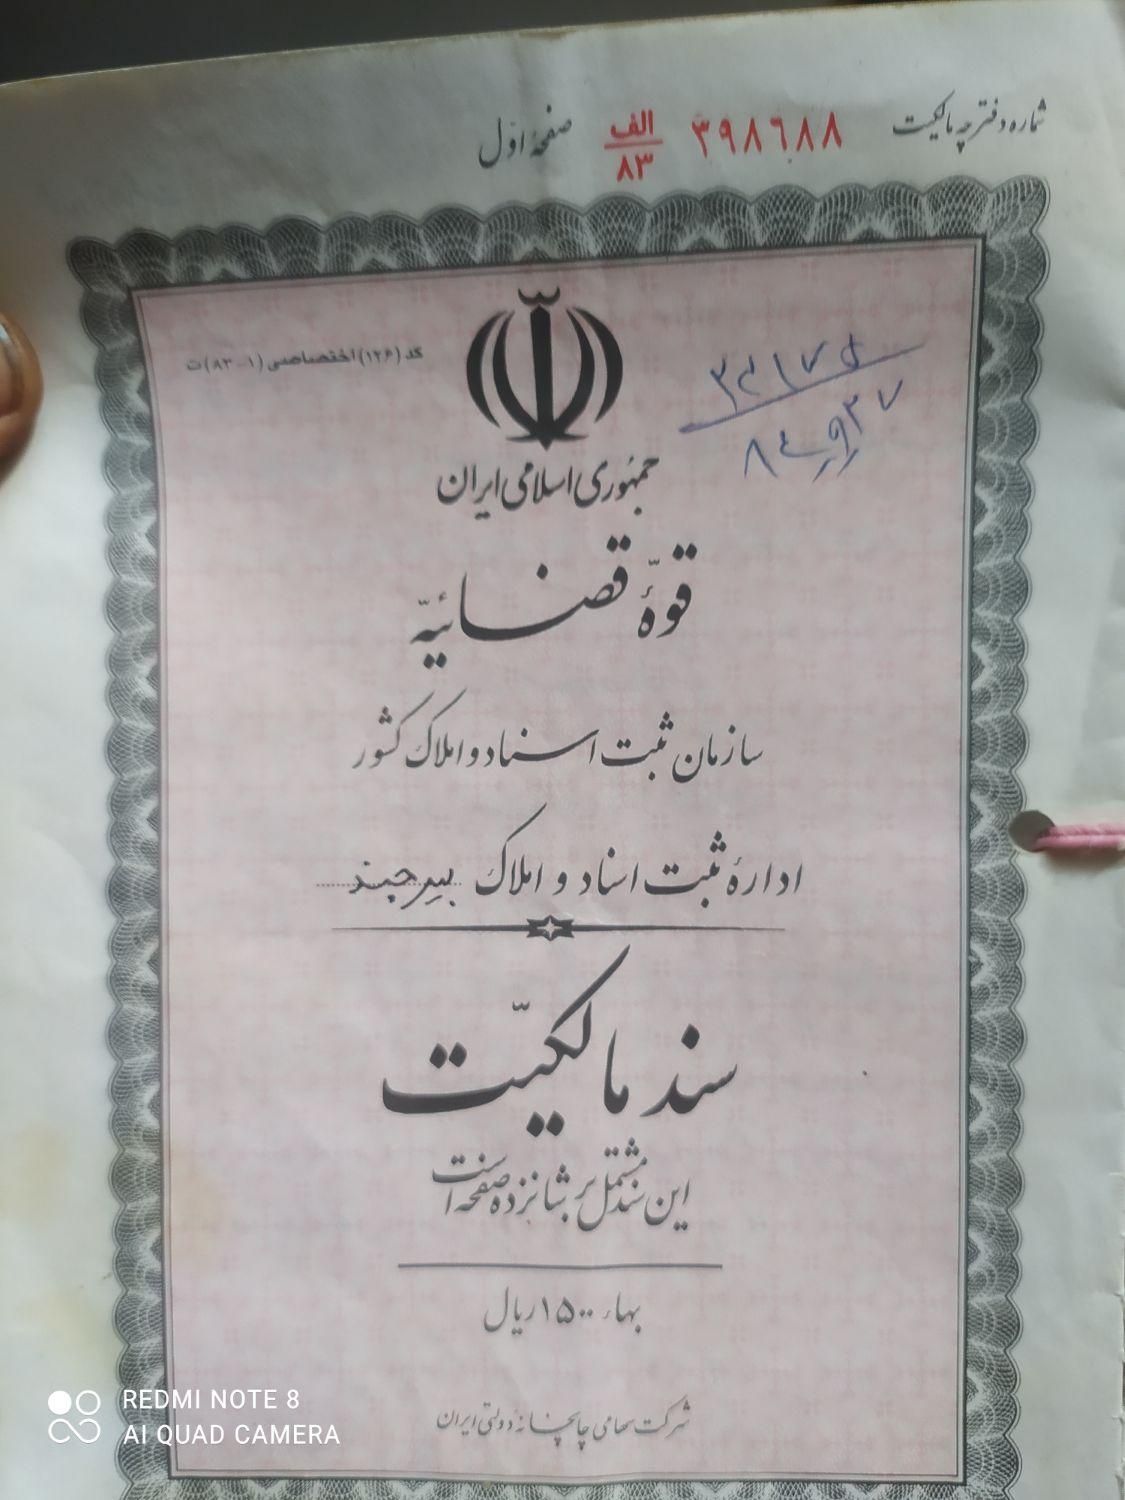 شماره دفترچه مالکیت ۳۹۸۶۸۸ الف/۸۳ صفحهٔ اوّل
کد (۱۲۶) اختصاصی (۱-۸۳) ت
جمهوری اسلامی ایران
قوّهٔ قضائیّه
سازمان ثبت اسناد و املاک کشور
ادارهٔ ثبت اسناد و املاک بیرجند
سند مالکیّت
این سند مشتمل بر شانزده صفحه است
بهاء ۱۵۰۰ ریال
شرکت سهامی چاپخانهٔ دولتی ایران
REDMI NOTE 8
AI QUAD CAMERA